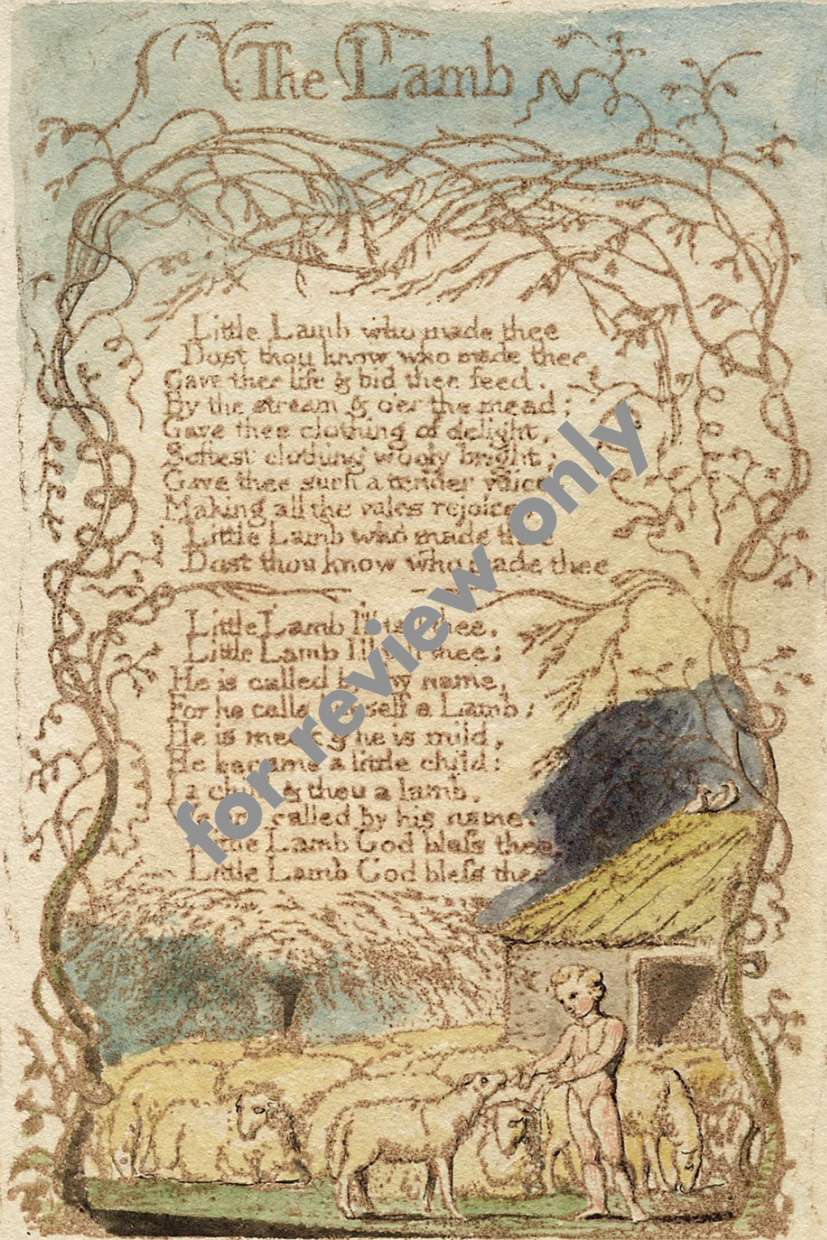 The Lamb
Little Lamb who made thee
Dost thou know who made thee
Gave thee life & bid thee feed.
By the stream & o'er the mead;
Gave thee clothing of delight,
Softest clothing wooly bright;
Gave thee such a tender voice,
Making all the vales rejoice:
Little Lamb who made thee
Dost thou know who made thee
Little Lamb I'll tell thee,
Little Lamb I'll tell thee;
He is called by thy name,
For he calls himself a Lamb:
He is meek & he is mild,
He became a little child:
I a child & thou a lamb,
We are called by his name.
Little Lamb God bleſs thee.
Little Lamb God bleſs thee.
for review only